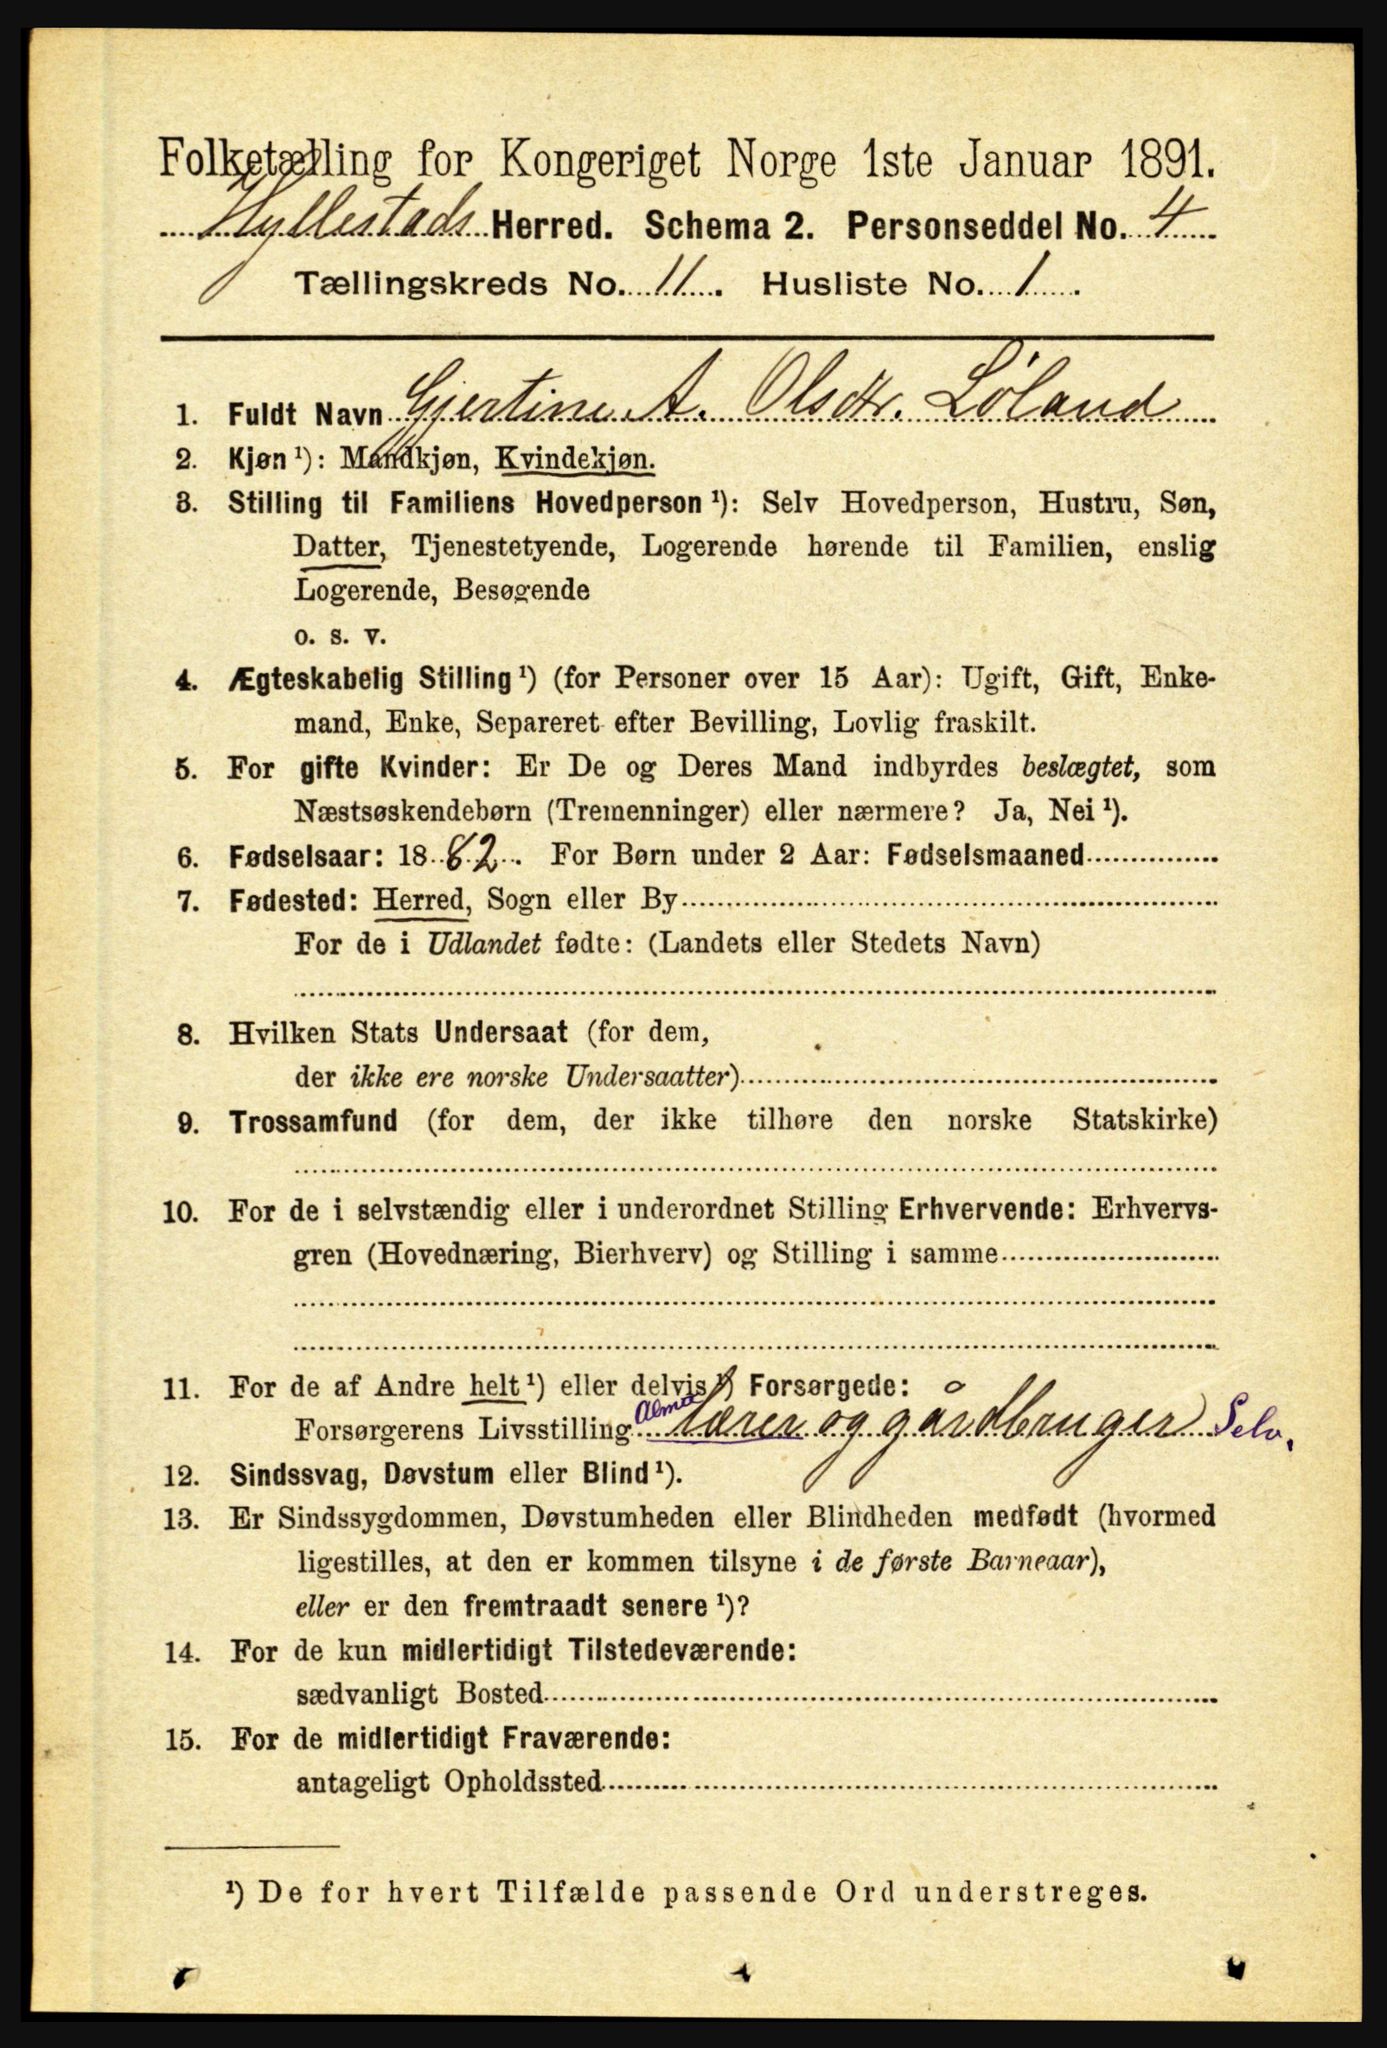 Folketælling for Kongeriget Norge 1ste Januar 1891.
Hyllestads Herred. Schema 2. Personseddel No. 4
Tællingskreds No. 11. Husliste No. 1.
1. Fuldt Navn Gjertine A. Olsdtr. Løland
2. Kjøn ¹): Mandkjøn, Kvindekjøn.
3. Stilling til Familiens Hovedperson ¹): Selv Hovedperson, Hustru, Søn,
Datter, Tjenestetyende, Logerende hørende til Familien, enslig
Logerende, Besøgende
o. s. v.
4. Ægteskabelig Stilling ¹) (for Personer over 15 Aar): Ugift, Gift, Enke-
mand, Enke, Separeret efter Bevilling, Lovlig fraskilt.
5. For gifte Kvinder: Er De og Deres Mand indbyrdes beslægtet, som
Næstsøskendebørn (Tremenninger) eller nærmere? Ja, Nei ¹).
6. Fødselsaar: 1882. For Børn under 2 Aar: Fødselsmaaned
7. Fødested: Herred, Sogn eller By
For de i Udlandet fødte: (Landets eller Stedets Navn)
8. Hvilken Stats Undersaat (for dem,
der ikke ere norske Undersaatter)
9. Trossamfund (for dem, der ikke tilhøre den norske Statskirke)
10. For de i selvstændig eller i underordnet Stilling Erhvervende: Erhvervs-
gren (Hovednæring, Bierhverv) og Stilling i samme
11. For de af Andre helt ¹) eller delvis ¹) Forsørgede:
Forsørgerens Livsstilling Alms lærer og gårdbruger Selv.
12. Sindssvag, Døvstum eller Blind ¹).
13. Er Sindssygdommen, Døvstumheden eller Blindheden medfødt (hvormed
ligestilles, at den er kommen tilsyne i de første Barneaar),
eller er den fremtraadt senere ¹)?
14. For de kun midlertidigt Tilstedeværende:
sædvanligt Bosted
15. For de midlertidigt Fraværende:
antageligt Opholdssted
¹) De for hvert Tilfælde passende Ord understreges.